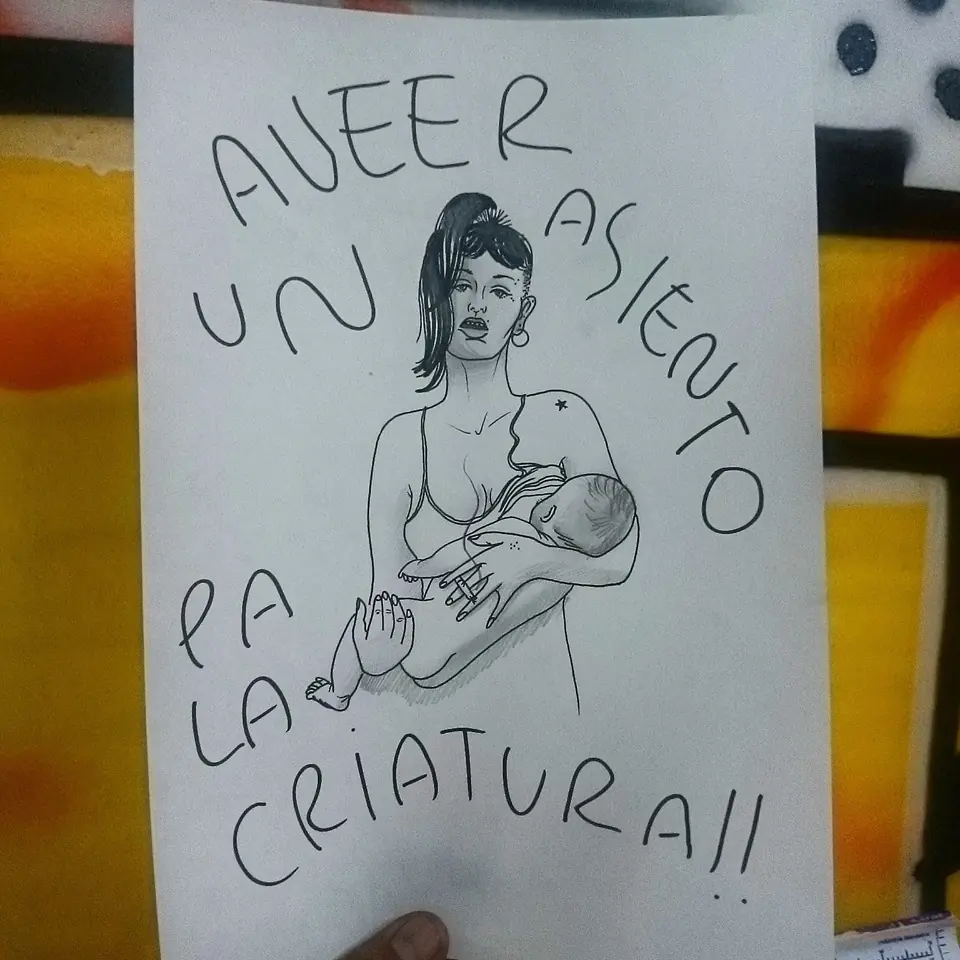 AVEER
UN ASIENTO
PA
LA
CRIATURA!!